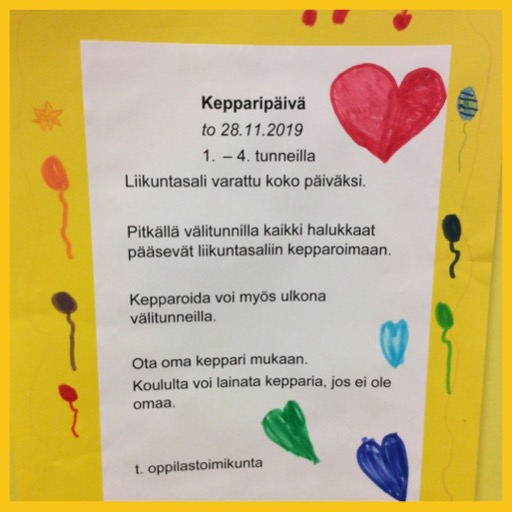 Kepparipäivä
to 28.11.2019
1. – 4. tunneilla
Liikuntasali varattu koko päiväksi.
Pitkällä välitunnilla kaikki halukkaat
pääsevät liikuntasaliin kepparoimaan.
Kepparoida voi myös ulkona
välitunneilla.
Ota oma keppari mukaan.
Koululta voi lainata kepparia, jos ei ole
omaa.
t. oppilastoimikunta